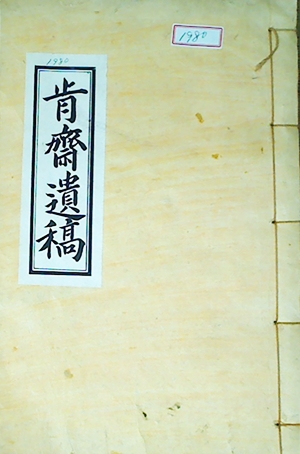 1980
1980
肯齋遺稿